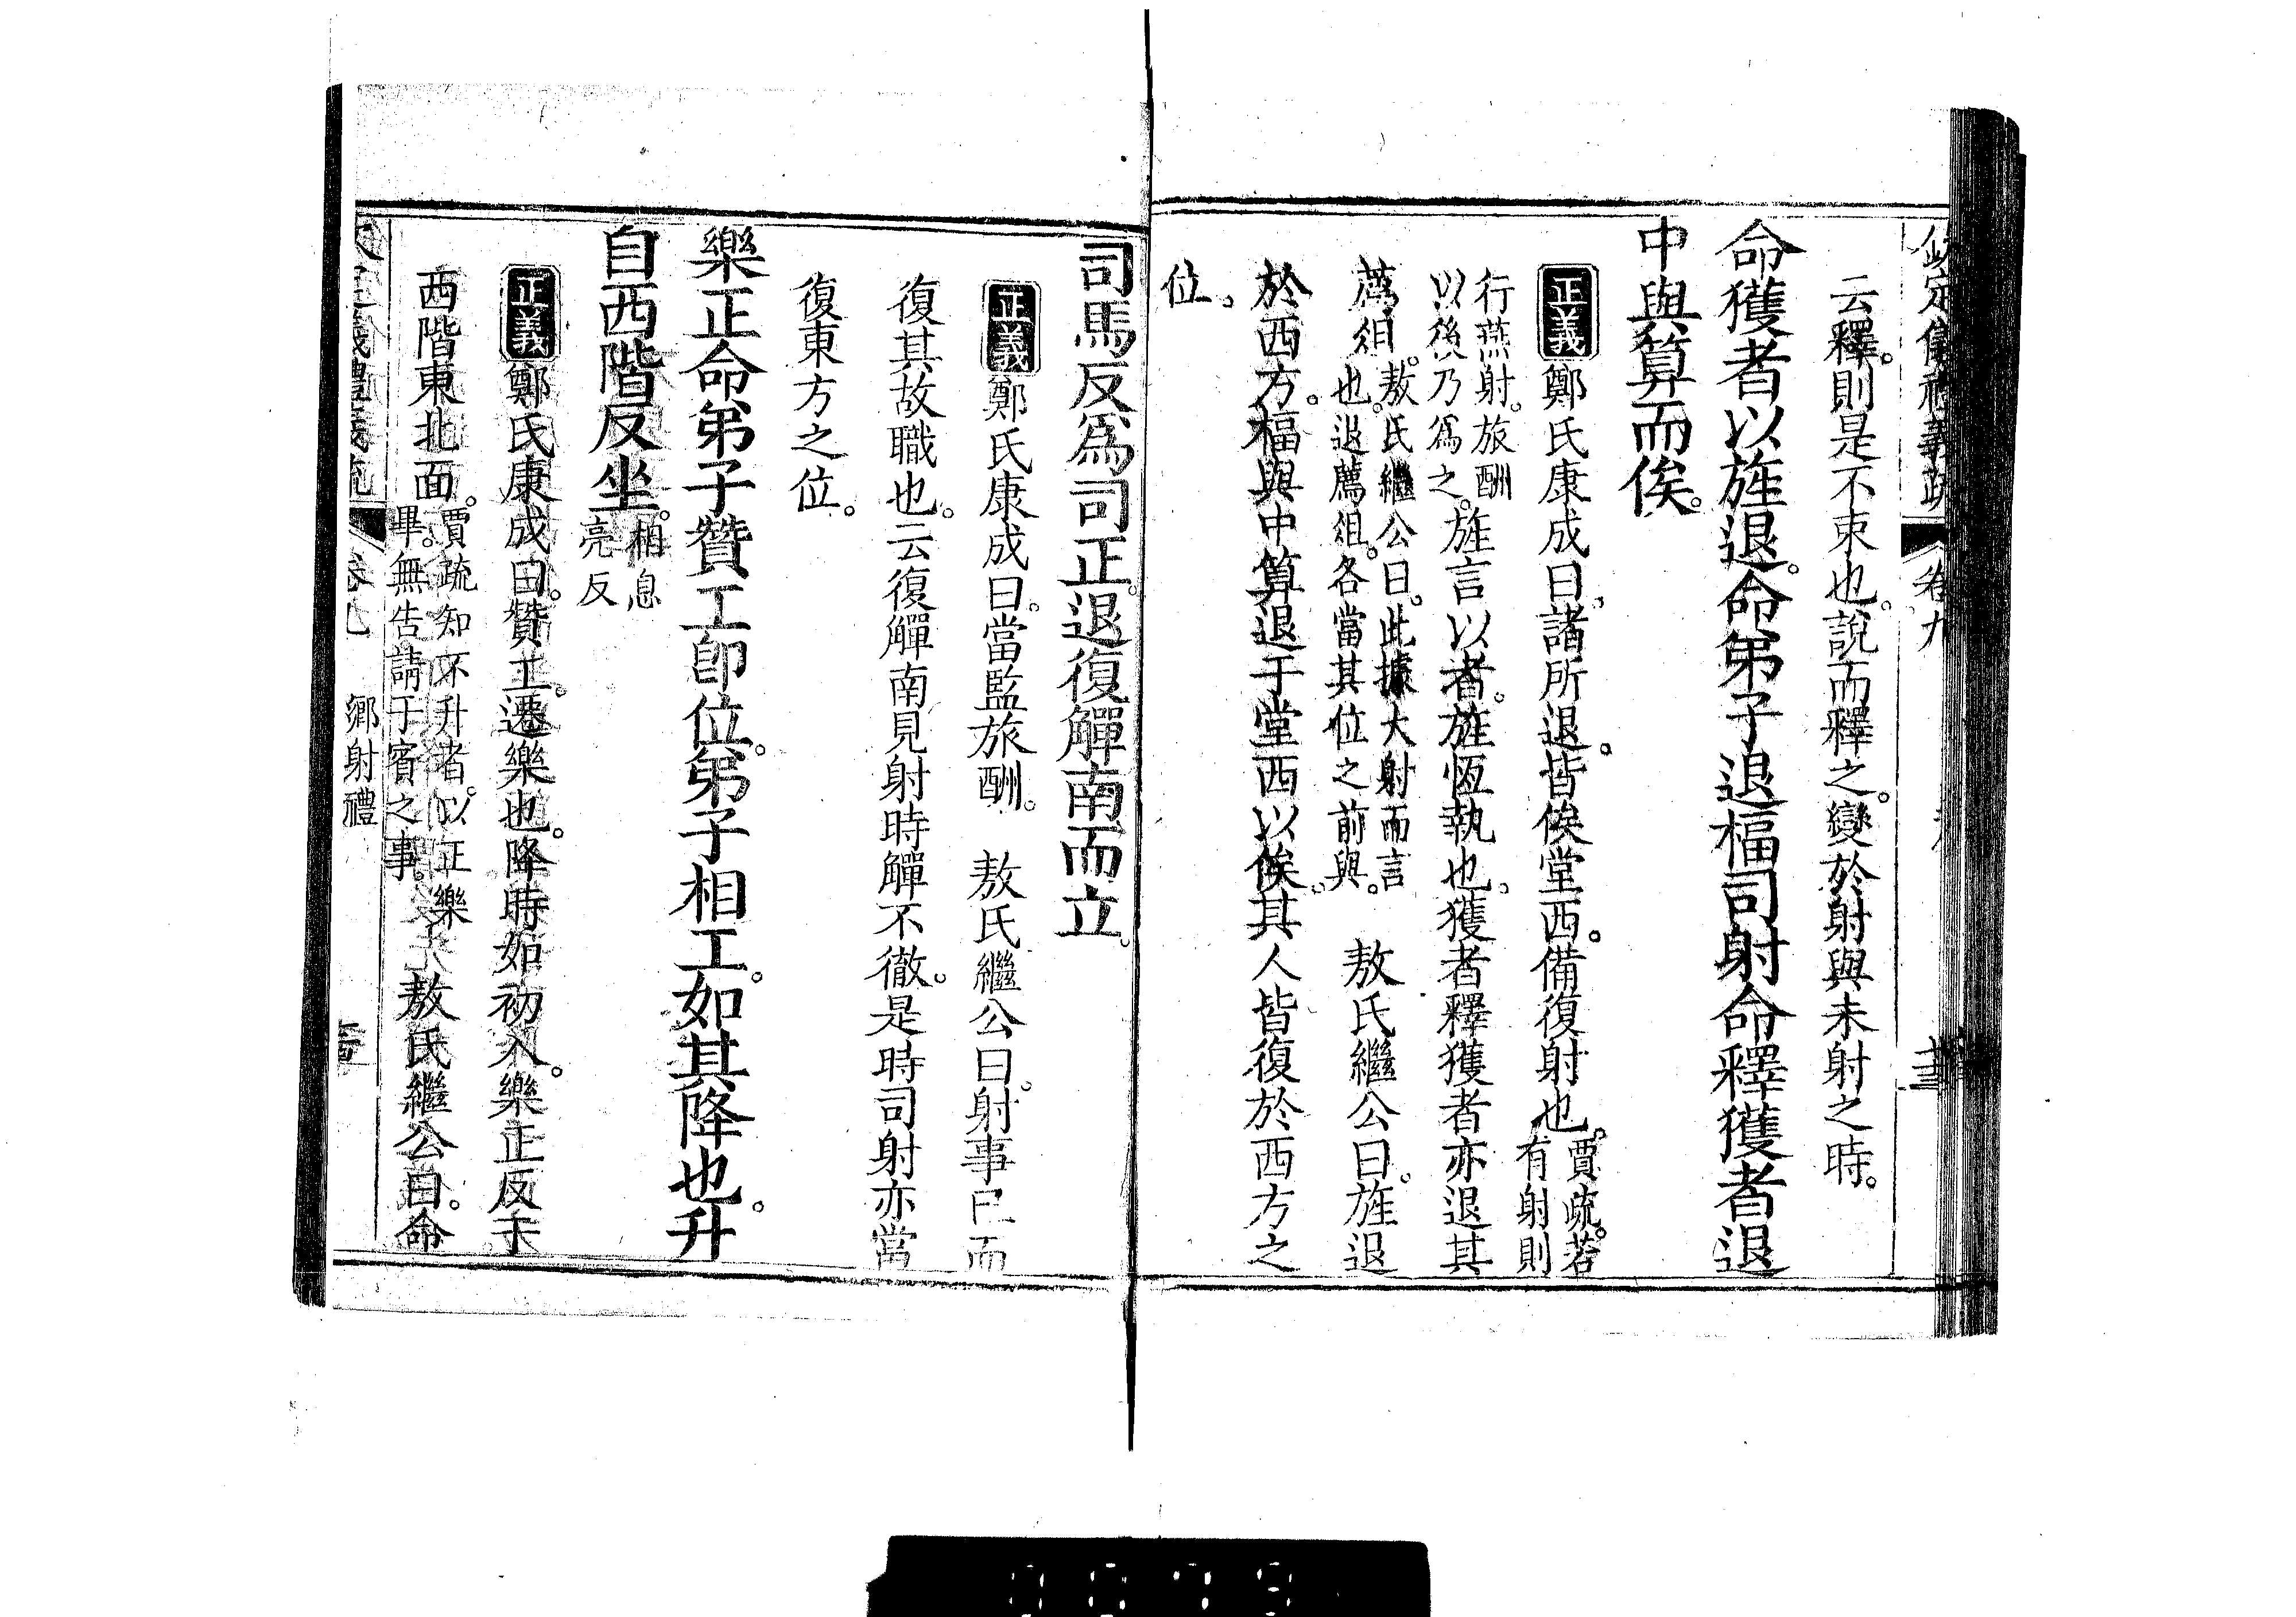 欽定儀禮義疏 卷九
云釋。則是不束也。說而釋之。變於射與未射之時。
命獲者以旌退。命弟子退楅。司射命釋獲者退
中與算而俟。
正義鄭氏康成曰。諸所退。皆俟堂西。備復射也。賈疏。若
有射則
行燕射。旅酬
以後乃爲之。旌言以者。旌恆執也。獲者釋獲者亦退其
薦俎。敖氏繼公曰。此據大射而言
也。退薦俎。各當其位之前與。 敖氏繼公曰。旌退
於西方。楅與中算退于堂西以俟。其人皆復於西方之
位。
司馬反爲司正。退復觶南而立。
正義鄭氏康成曰。當監旅酬。 敖氏繼公曰。射事已而
復其故職也。云復觶南見射時觶不徹。是時司射亦當
復東方之位。
樂正命弟子贊工卽位。弟子相工。如其降也。升
自西階反坐。相息
亮反
正義鄭氏康成曰。贊工。遷樂也。降時如初入。樂正反于
西階東北面。賈疏知不升者。以正樂
畢。無告請于賓之事。 敖氏繼公曰。命
鄉射禮